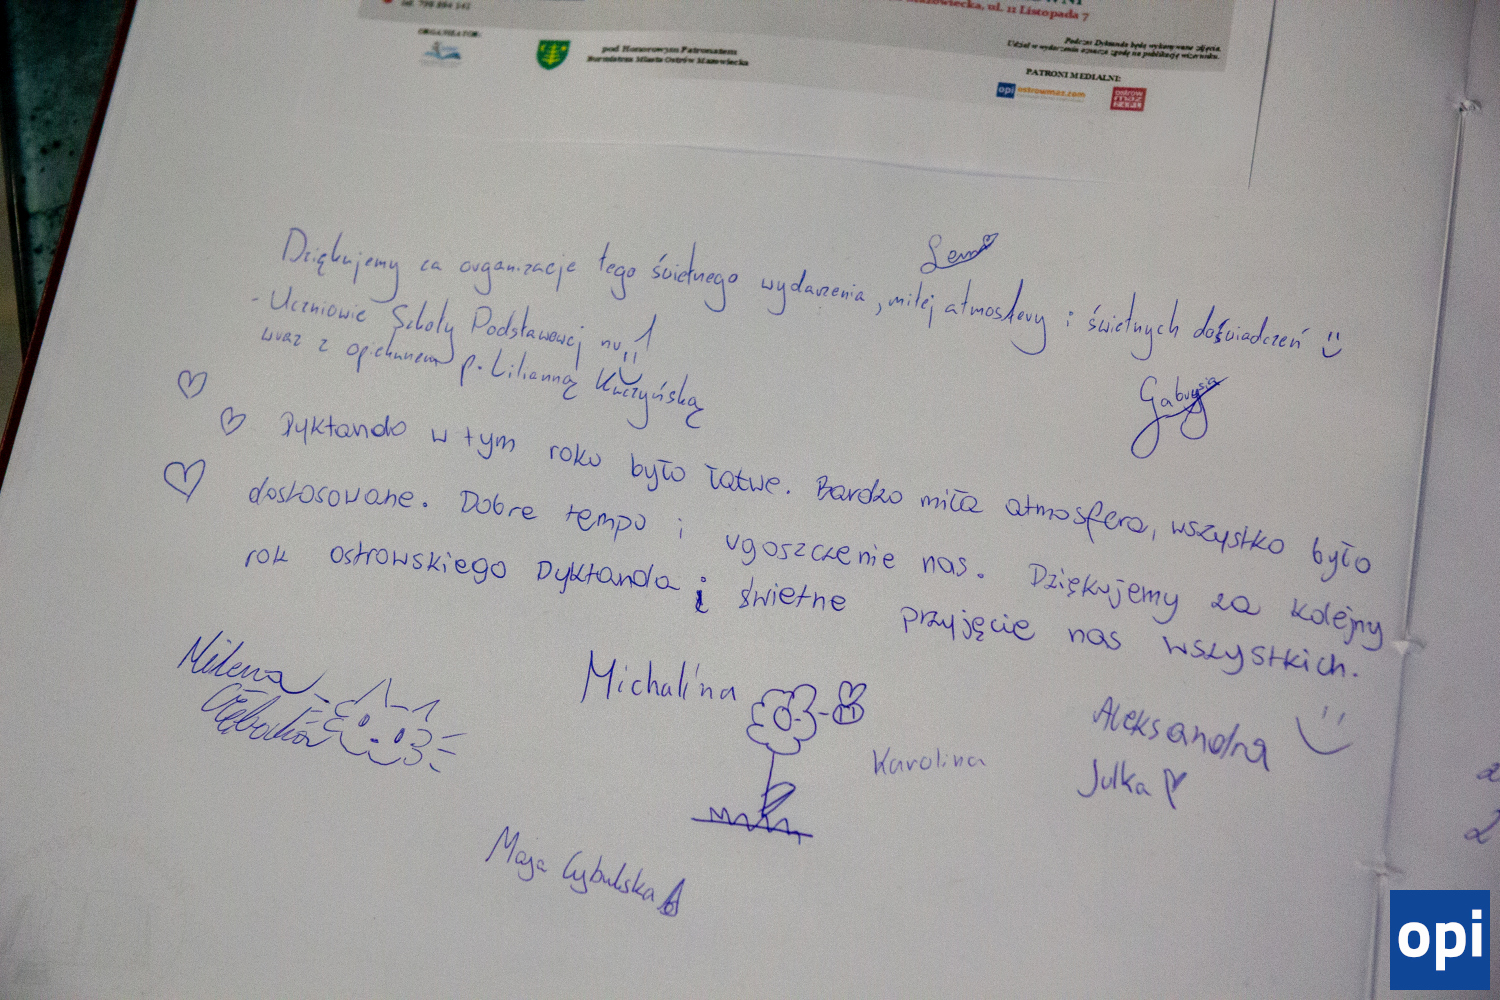 ul. 11 Listopada 7
tel. 798 894 142
ORGANIZATOR:
pod Honorowym Patronatem
Burmistrza Miasta Ostrów Mazowiecka
Podczas Dyktanda będą wykonywane zdjęcia.
Udział w wydarzeniu oznacza zgodę na publikację wizerunku.
PATRONI MEDIALNI:
opi ostrowmaz.com
Lena
Dziękujemy za organizacje tego świetnego wydarzenia, miłej atmosfery i świetnych doświadczeń
- Uczniowie Szkoły Podstawowej nr 1
wraz z opiekunem p. Lilianną Kuczyńską
Gabrysia
Dyktando w tym roku było łatwe. Bardzo miła atmosfera, wszystko było
dostosowane. Dobre tempo i ugoszczenie nas. Dziękujemy za kolejny
rok ostrowskiego Dyktanda i świetne przyjęcie nas wszystkich.
Milena
Michalina
Aleksandra
Karolina
Julka
Maja Cybulska
opi